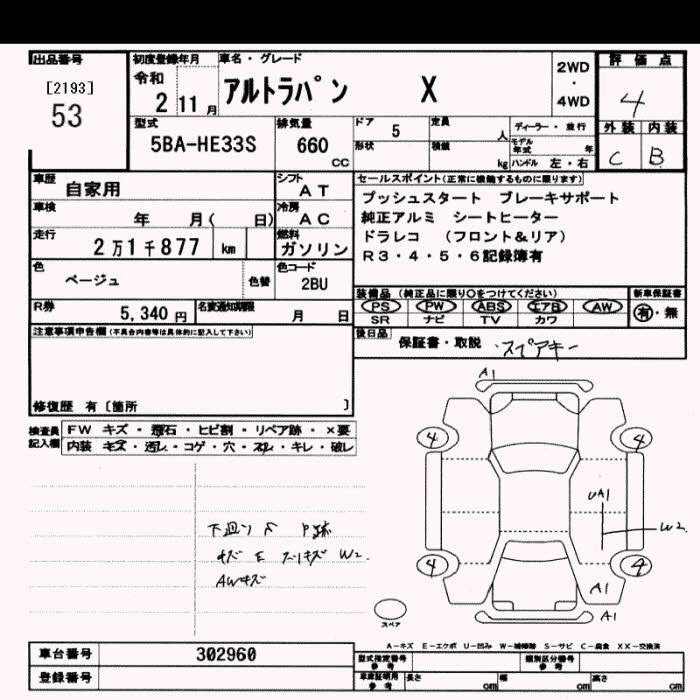 出品番号 初度登録年月 車名・グレード 2WD ・ 4WD 評価点
[2193] 令和 アルトラパン X 4
53 2 11月
型式 排気量 ドア 5 定員 人 ディーラー・並行 外装 内装
5BA-HE33S 660 cc 形状 積載 kg モデル年式 年 ハンドル 左・右 C B
車歴 自家用 シフト AT セールスポイント(正常に機能するものに限ります)
車検 年 月( 日) 冷房 AC プッシュスタート ブレーキサポート
純正アルミ シートヒーター
走行 2万1千877 km 燃料 ガソリン ドラレコ (フロント&リア)
R3・4・5・6記録簿有
色 ベージュ 色替 色コード 2BU
装備品 (純正品に限り○をつけてください) 新車保証書
R券 5,340円 名変通知期限 月 日 PS PW ABS エアB AW 有・無
SR ナビ TV カワ
注意事項申告欄(不具合内容等は具体的に記入して下さい) 後日品 保証書・取説 ・スペアキー
修復歴 有〔箇所 〕
検査員記入欄 FW キズ・飛石・ヒビ割・リペア跡・×要
内装 キズ・汚レ・コゲ・穴・スレ・キレ・破レ
A1
4 4
UA1
W2
下廻り
キズ E スリキズ W2.
AWキズ
4 4
A1
A1
スペア
A-キズ E-エクボ U-凹み W-補修跡 S-サビ C-腐食 XX-交換済
車台番号 302960 型式指定番号 参考 類別区分番号 参考
登録番号 車庫証明用 参考 長さ cm 幅 cm 高さ cm